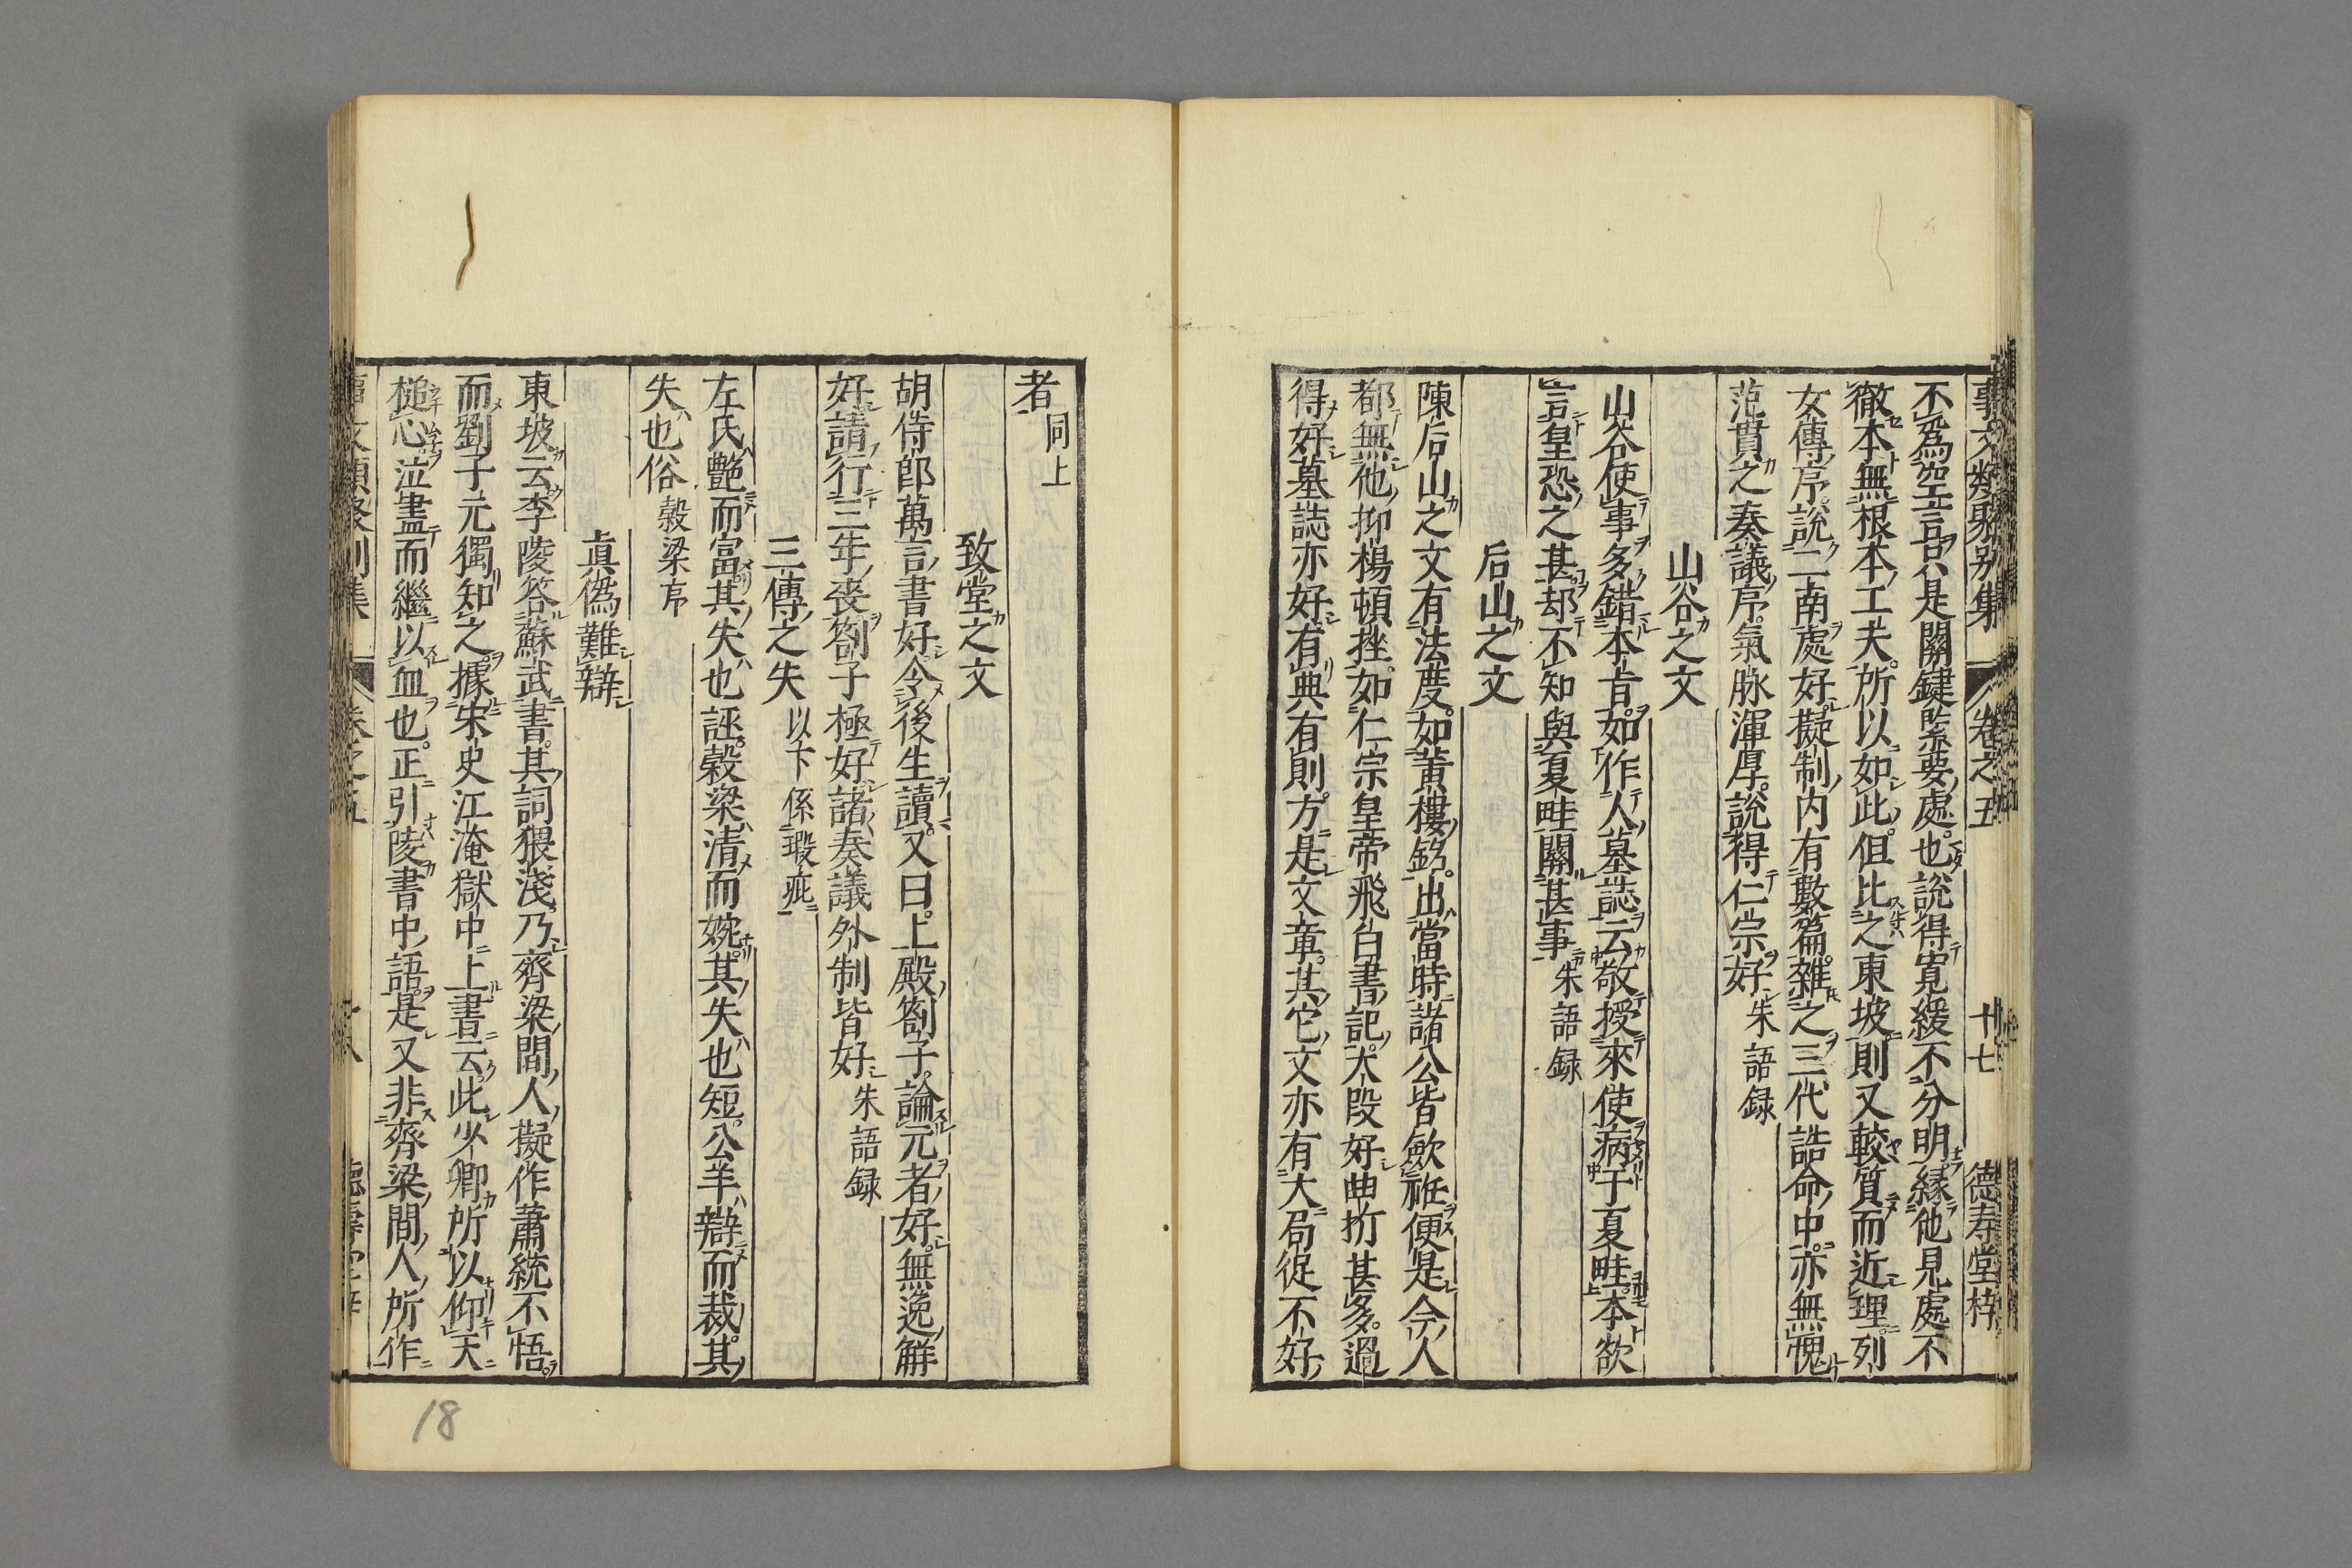 事文類聚别集 卷之五 十七 德寿堂梓
不為空言只是關鍵緊要處也說得寛緩不分明縁他見處不
徹本無根本工夫所以如此但比之東坡則又較質而近理列
女傳序說二南處好擬制内有數篇雜之三代誥命中亦無愧
范貫之奏議序氣脉渾厚說得仁宗好 朱語録
山谷之文
山谷使事多錯本旨如作人墓誌云敬授來使病于夏畦本欲
言皇恐之甚却不知與夏畦關甚事 朱語録
后山之文
陳后山之文有法度如黄樓銘出當時諸公皆歛袵便是今人
都無他抑楊頓挫如仁宗皇帝飛白書記大段好曲折甚多過
得好墓誌亦好有典有則方是文章其它文亦有大局促不好
者 同上
致堂之文
胡侍郎萬言書好令後生讀又曰上殿劄子論元者好無逸觧
好請行三年喪劄子極好諸奏議外制皆好 朱語録
三傳之失 以下係瑕疵
左氏艶而富其失也誣穀梁清而婉其失也短公羊辯而裁其
失也俗 穀梁序
眞僞難辯
東坡云李陵答蘇武書其詞猥淺乃齊梁間人擬作蕭統不悟
而劉子元獨知之據宋史江淹獄中上書云此少卿所以仰天
槌心泣盡而繼以血也正引陵書中語是又非齊梁間人所作
卷之五
18